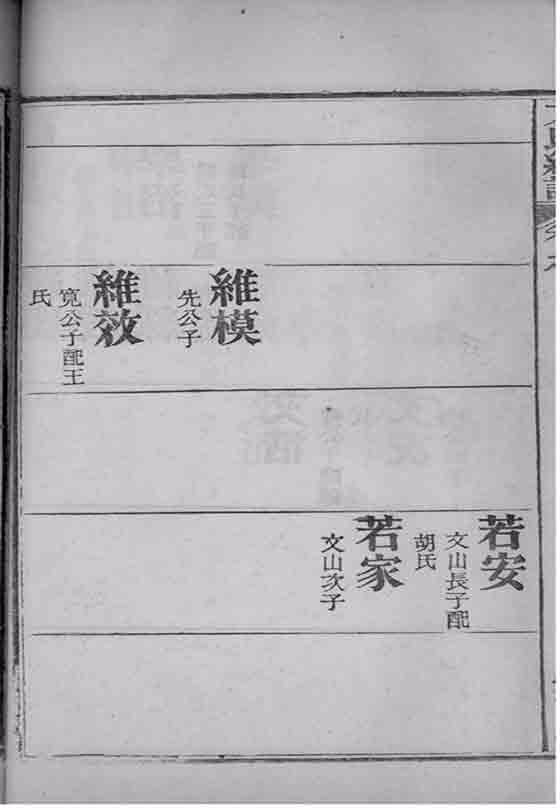 維模
先公子
維效
寬公子配王
氏
若安
文山長子配
胡氏
若家
文山次子